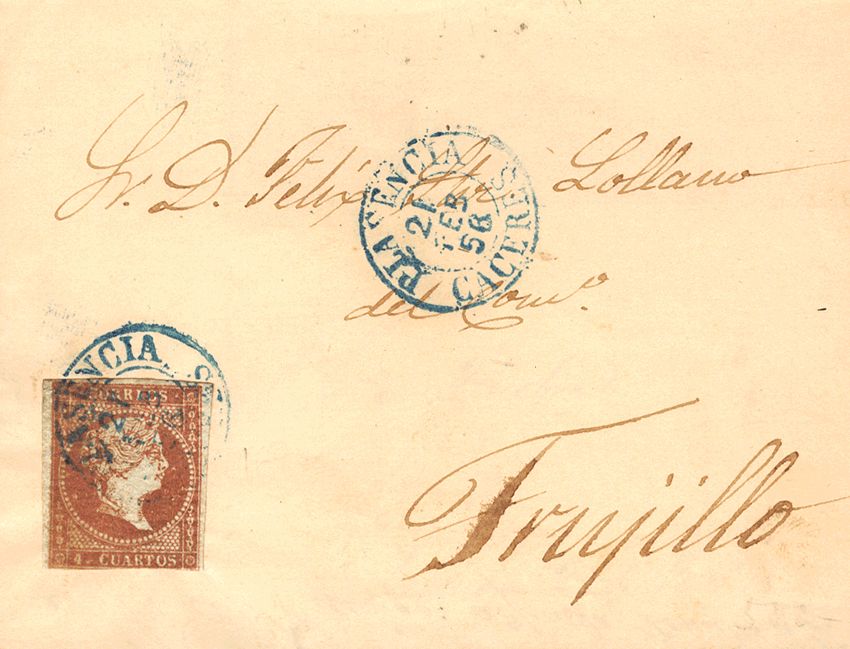 Sr. D. Felix Lollano
del Comº.
PLASENCIA
21
FEB
56
CACERES
PLASENCIA
21
CORREOS
4 CUARTOS
Trujillo